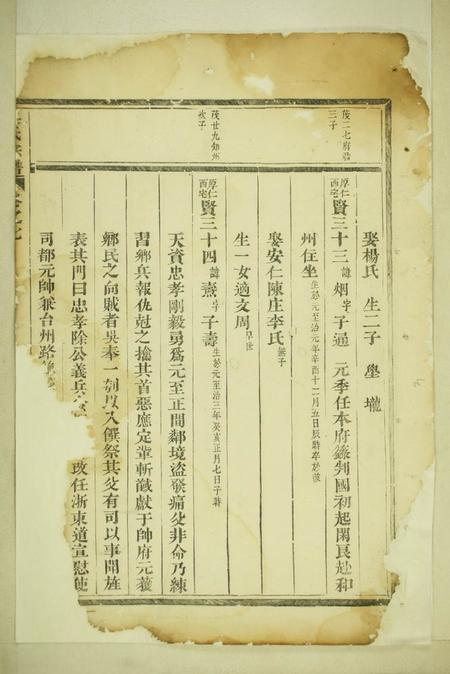 茂二七府君
三子
茂廿九知州
次子
娶楊氏 生二子 壆 壠
厚仁
西宅
賢三十三諱烟字子通 元季任本府錄判國初起閑良赴和
州任坐生於元至治元年辛酉十二月五日辰時卒於
娶安仁陳庄李氏無子
生一女適文周早世
厚仁
西宅
賢三十四諱燾字子壽生於元至治三年癸亥正月七日子時
天資忠孝剛毅勇爲元至正間鄰境盜發痛父非命乃練
習鄉兵報仇尅之擒其首惡應定軰斬馘獻于帥府元獲
鄉氏之向賊者吳奉一刳以入饌祭其父有司以事聞旌
表其門曰忠孝除公義兵 改任浙東道宣慰使
司都元帥兼台州路